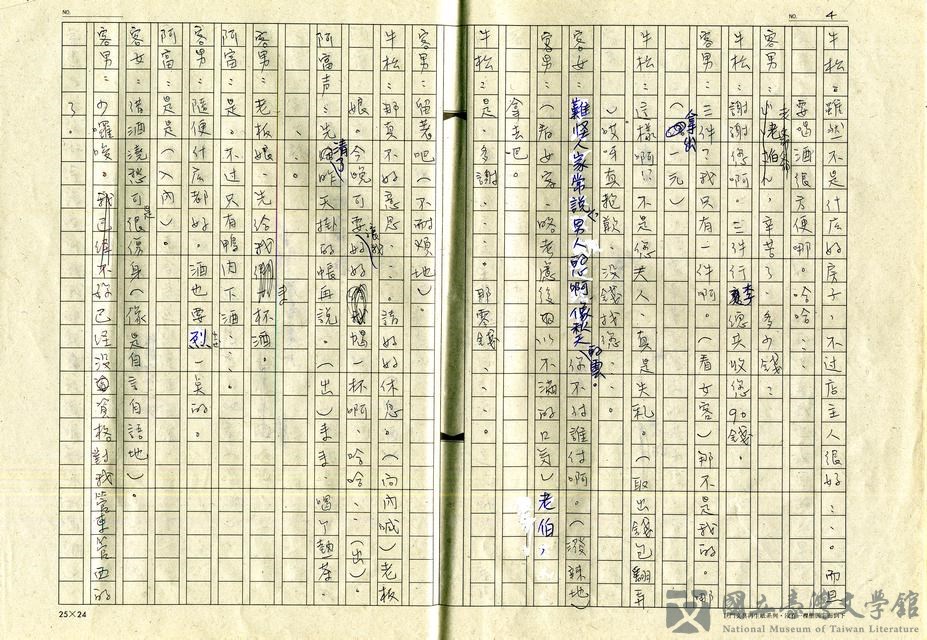 NO. 4
牛松：雖然不是什麼好房子，不過店主人很好…。而且
要喝酒很方便哪。哈哈…
客男：老爺爺，辛苦了。多少錢？
牛松：謝謝您啊。三件行李總共收您90錢。
客男：三件？我只有一件啊。（看女客）那不是我的。哪
（拿出一元）
牛松：這樣啊！？不是您夫人，真是失礼。（取出錢包翻弄
）哎呀真抱歉，沒錢找您。
客女：難怪人家常說，男人的心啊像秋天的雲。你不付誰付啊。（潑辣地）
客男：（看女客，略考慮後以不滿的口氣）老伯，
拿去吧。
牛松：是，多謝…那零錢…。
客男：留著吧（不耐煩地）
牛松：那真不好意思…請好好休息。（向內喊）老板
娘。今晚可要讓我好好喝一杯啊，哈哈…（出）
阿富声：先清了昨天掛的帳再說。（出）手手，喝了熱茶，
…。
客男：老板娘，先給我來杯酒。
阿富：是。不过只有鴨肉下酒…。
客男：隨便什麼都好。酒也要烈一矣的。
阿富：是是（入內）。
客女：借酒澆愁可是很傷身（像是自言自語地）。
客男：少囉唆。我已經沒資格對我管東管西的
了。
25×24
國立臺灣文學館
National Museum of Taiwan Literature